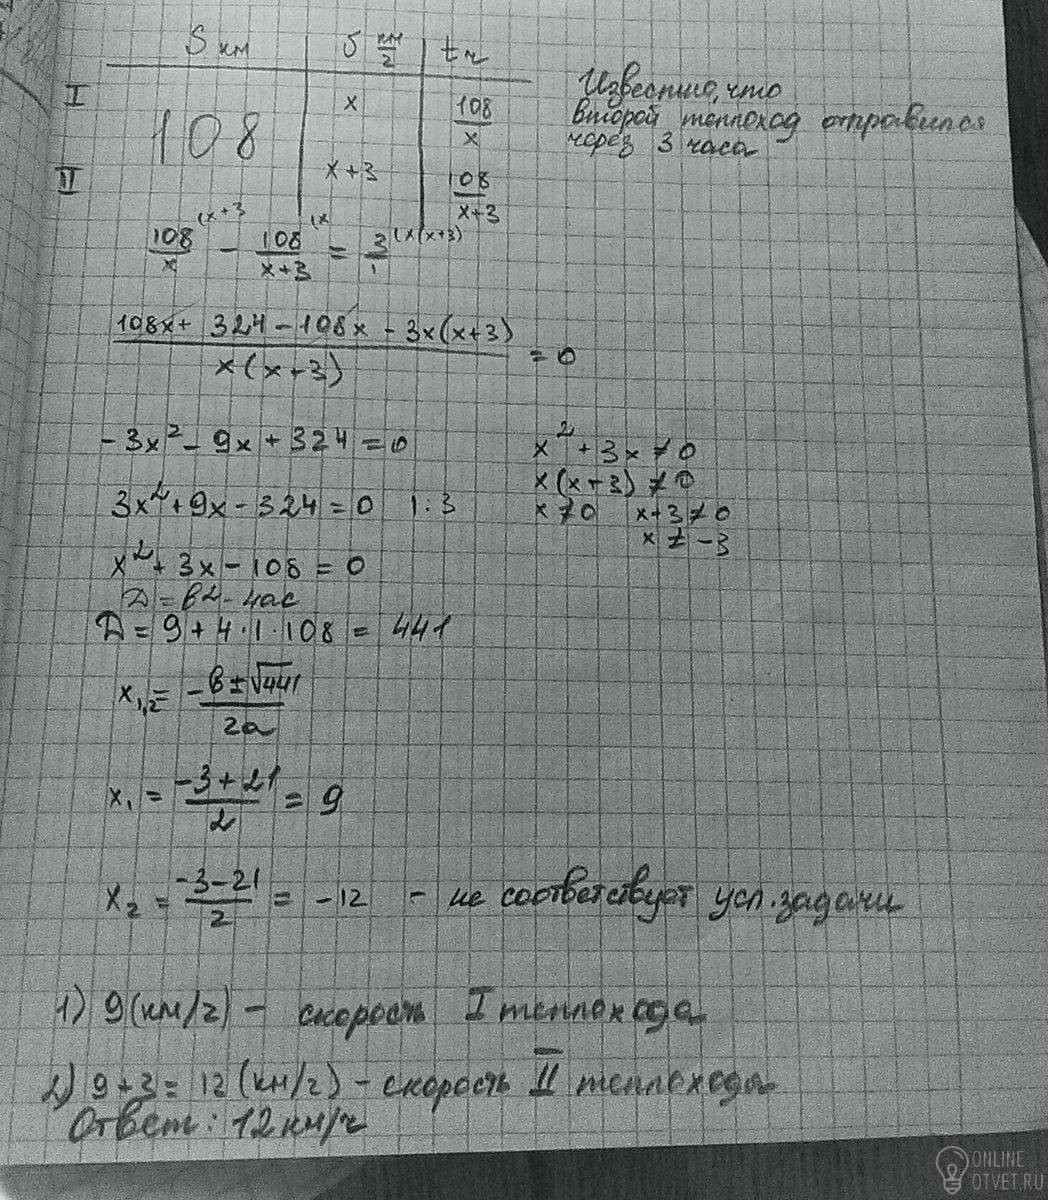 S км υ км/г t ч
I 108 x 108/x
II x+3 108/x+3
Известно, что
второй теплоход отправился
через 3 часа
108/x (x+3 - 108/x+3 (x = 3/1 (x(x+3)
108x + 324 - 108x - 3x(x+3) / x(x+3) = 0
-3x² - 9x + 324 = 0
3x² + 9x - 324 = 0 | :3
x² + 3x - 108 = 0
D = b² - 4ac
D = 9 + 4·1·108 = 441
x² + 3x ≠ 0
x(x+3) ≠ 0
x ≠ 0 x+3 ≠ 0
x ≠ -3
x₁,₂ = -b ± √441 / 2a
x₁ = -3 + 21 / 2 = 9
x₂ = -3 - 21 / 2 = -12 - не соответствует усл. задачи
1) 9 (км/г) - скорость I теплохода
2) 9 + 3 = 12 (км/г) - скорость II теплохода
Ответ: 12 км/ч
ONLINE
OTVET.RU